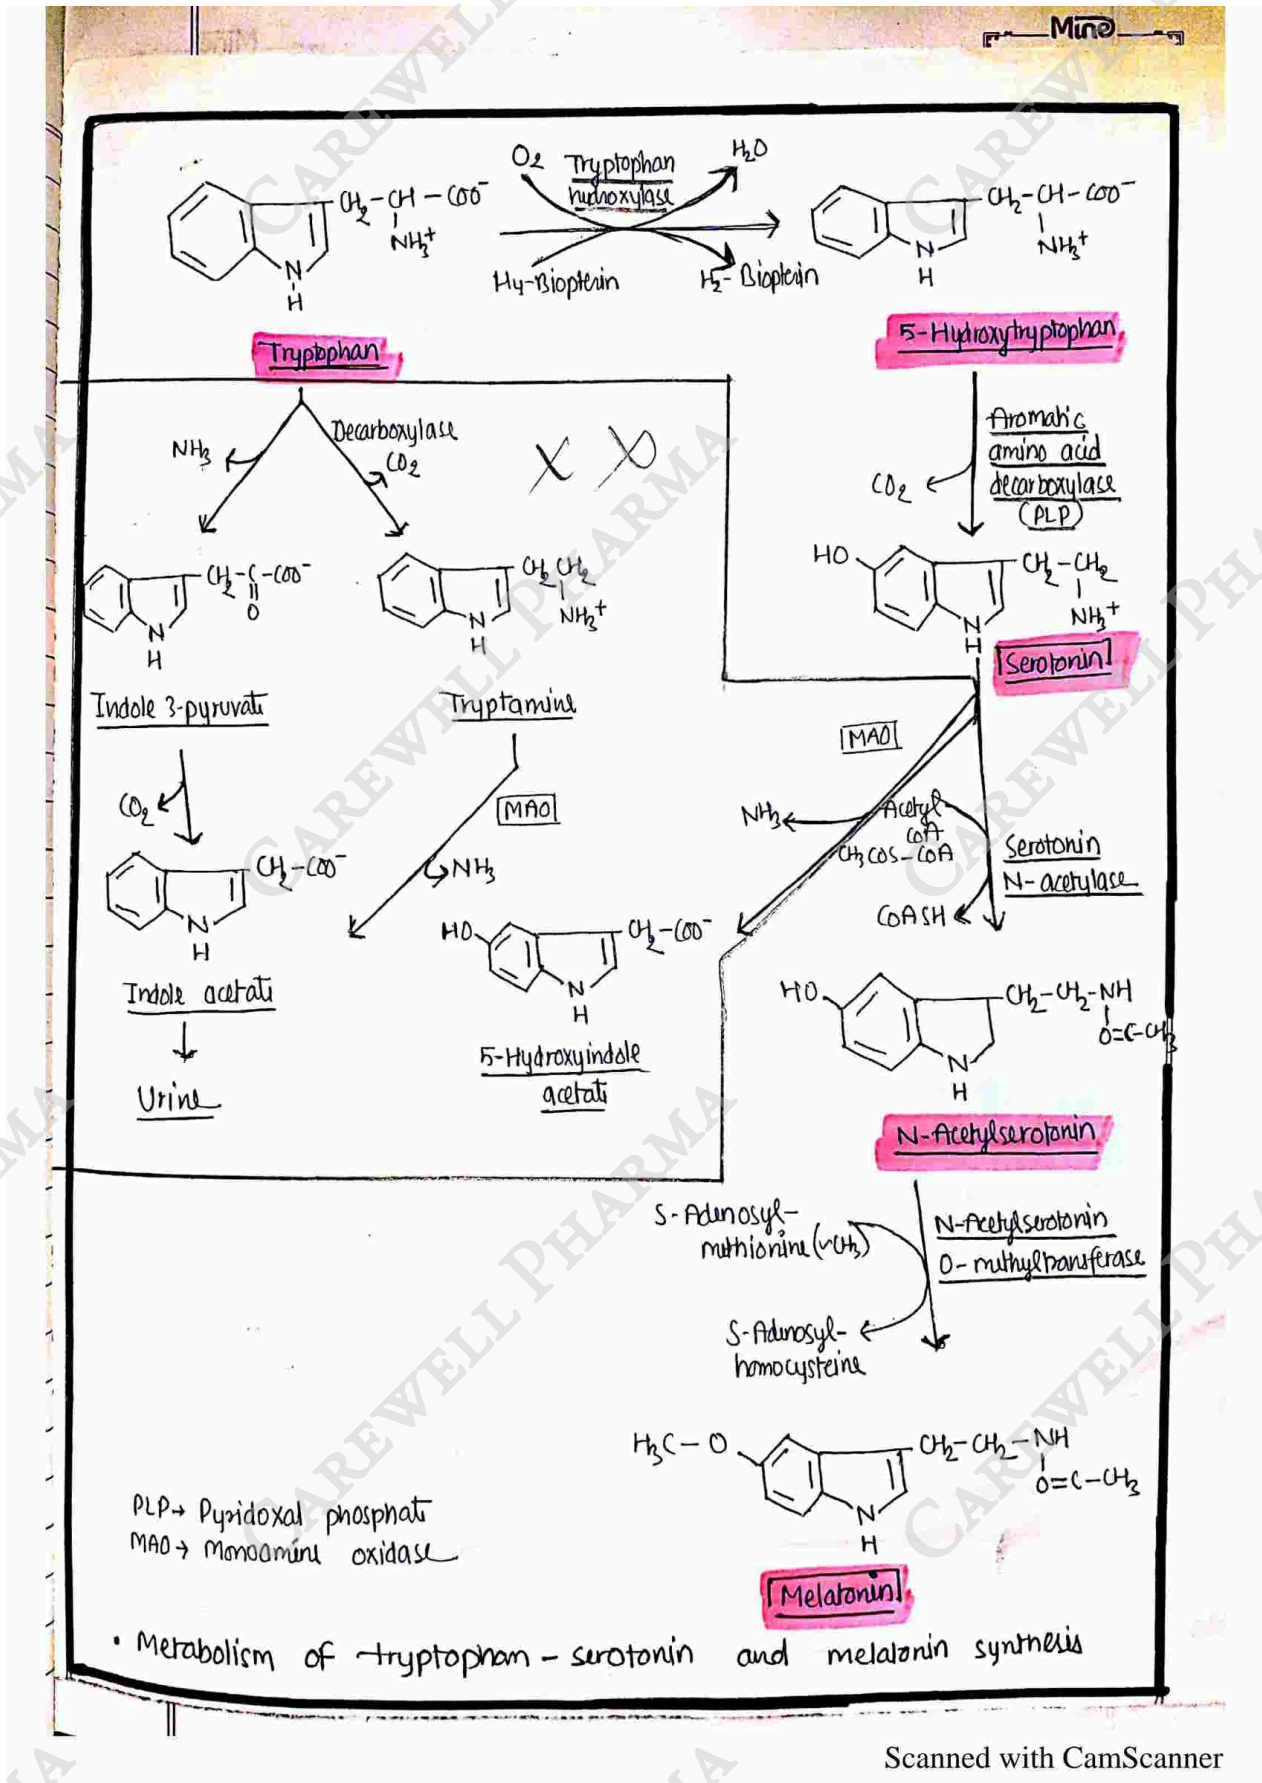 Mino
O2
Tryptophan
hydroxylase
H2O
CH2-CH-COO-
NH3+
N
H
H4-Biopterin
H2-Biopterin
CH2-CH-COO-
NH3+
N
H
Tryptophan
5-Hydroxytryptophan
NH3
Decarboxylase
CO2
Aromatic
amino acid
decarboxylase
(PLP)
CO2
CH2-C-COO-
O
N
H
CH2CH2
NH3+
N
H
HO
CH2-CH2
NH3+
N
H
Serotonin
Indole 3-pyruvate
Tryptamine
MAO
CO2
MAO
NH3
NH3
Acetyl
CoA
CH3COS-CoA
Serotonin
N-acetylase
CoASH
CH2-COO-
N
H
HO
CH2-COO-
N
H
Indole acetate
Urine
5-Hydroxyindole
acetate
HO
CH2-CH2-NH
O=C-CH3
N
H
N-Acetylserotonin
S-Adenosyl-
methionine (~CH3)
N-Acetylserotonin
O-methyltransferase
S-Adenosyl-
homocysteine
H3C-O
CH2-CH2-NH
O=C-CH3
N
H
PLP→ Pyridoxal phosphate
MAO→ Monoamine oxidase
Melatonin
• Metabolism of tryptophan - serotonin and melatonin synthesis
Scanned with CamScanner
CAREWELL PHARMA